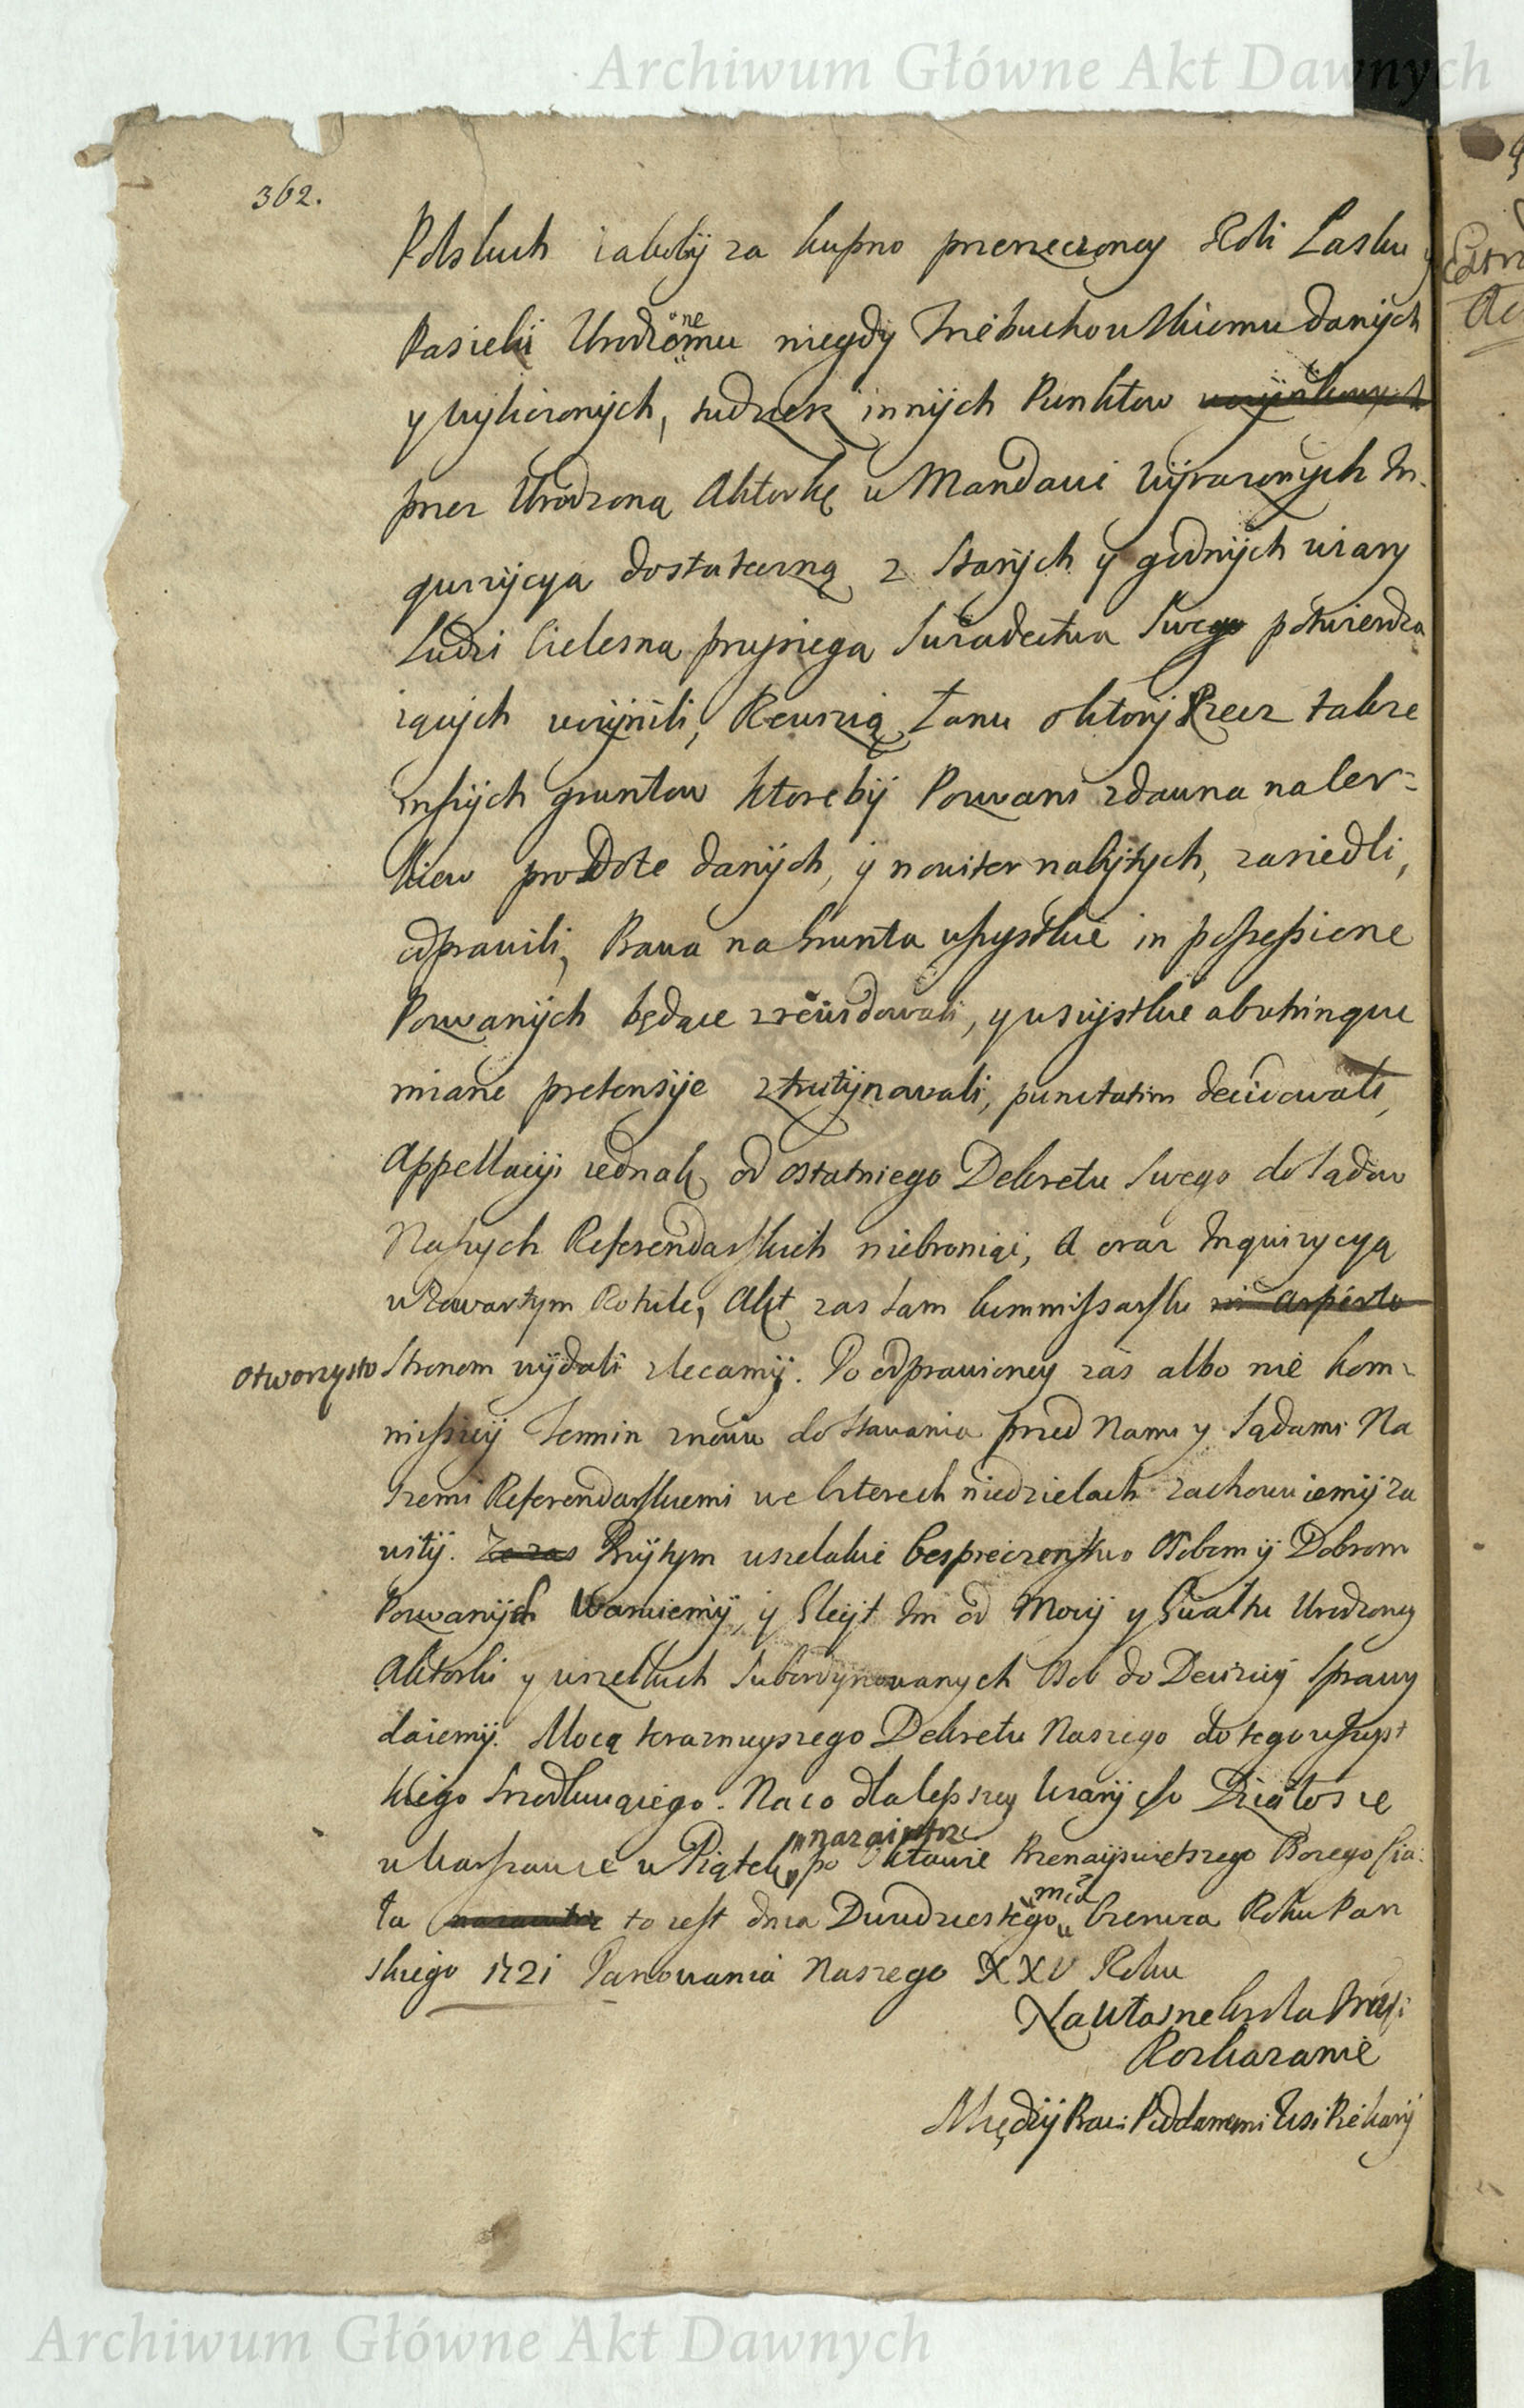 Archiwum Główne Akt Dawnych
362.
Polskich iakoby za kupno przerzeczoney Roli Lasku y
Pasieki Urodzonemu niegdy Trebuchowskiemu danych
y wyliczonych, tudzież innych Punktow
przez Urodzoną Aktorkę w Mandacie wyrazonych In-
quizycyą dostateczną z Starych y godnych wiary
Ludzi Cielesną przysięgą Swiadectwa Swego potwierdza
iących uczynili, Rewizią Łanu o ktory Rzecz takze
inszych gruntow ktoreby Pozwani zdawna nalez-
kiew pro Dote danych, y noviter nabytych, zasiedli,
odprawili, Prawa na Grunta wszystkie in possessione
Pozwanych będące zrewidowali, y wszystkie ab utrinque
miane pretensye ztrutynowali, punctatim decidowali,
Appellacyi iednak od ostatniego Dekretu Swego do Sądow
Naszych Referendarskich niebroniąc, A oraz Inquizycyą
w Zawartym Rotule, Akt zas sam kommissarski in aperto
otworzysto Stronom wydali zlecamy. Po odprawioney zas albo nie kom-
missiiy Termin znowu do stawania przed Nami y Sądami Na
szemi Referendarskiemi we czterech niedzielach zachowuiemy za
wity. Zaras Przytym wszelakie bespieczenstwo Osobom y Dobrom
Pozwanych Waruiemy, y Gleyt Im od Mocy y Gwałtu Urodzoney
Aktorki y wszelkich Subordynowanych Osob do Decizyi Sprawy
daiemy. Mocą teraznieyszego Dekretu Naszego do tego wszyst
kiego Srzodkuiącego. Na co dla lepszey wiary
w Warszawie w Piątek nazaiutrz po Oktawie Przenayswietszego Bozego Cia-
ła nazaiutrz to iest dnia Dwudziestego Czerwca Roku Pan
skiego 1721 Panowania Naszego XXV Roku
Na własne Krola Jmci
Rozkazanie
Między Prac: Poddanemi Wsi Piekary
Archiwum Główne Akt Dawnych